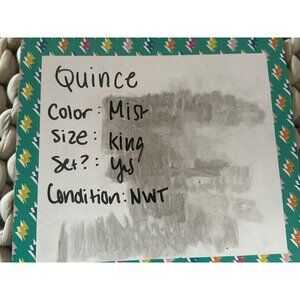 Quince
Color: Mist
Size: King
Set?: Yes
Condition: NWT